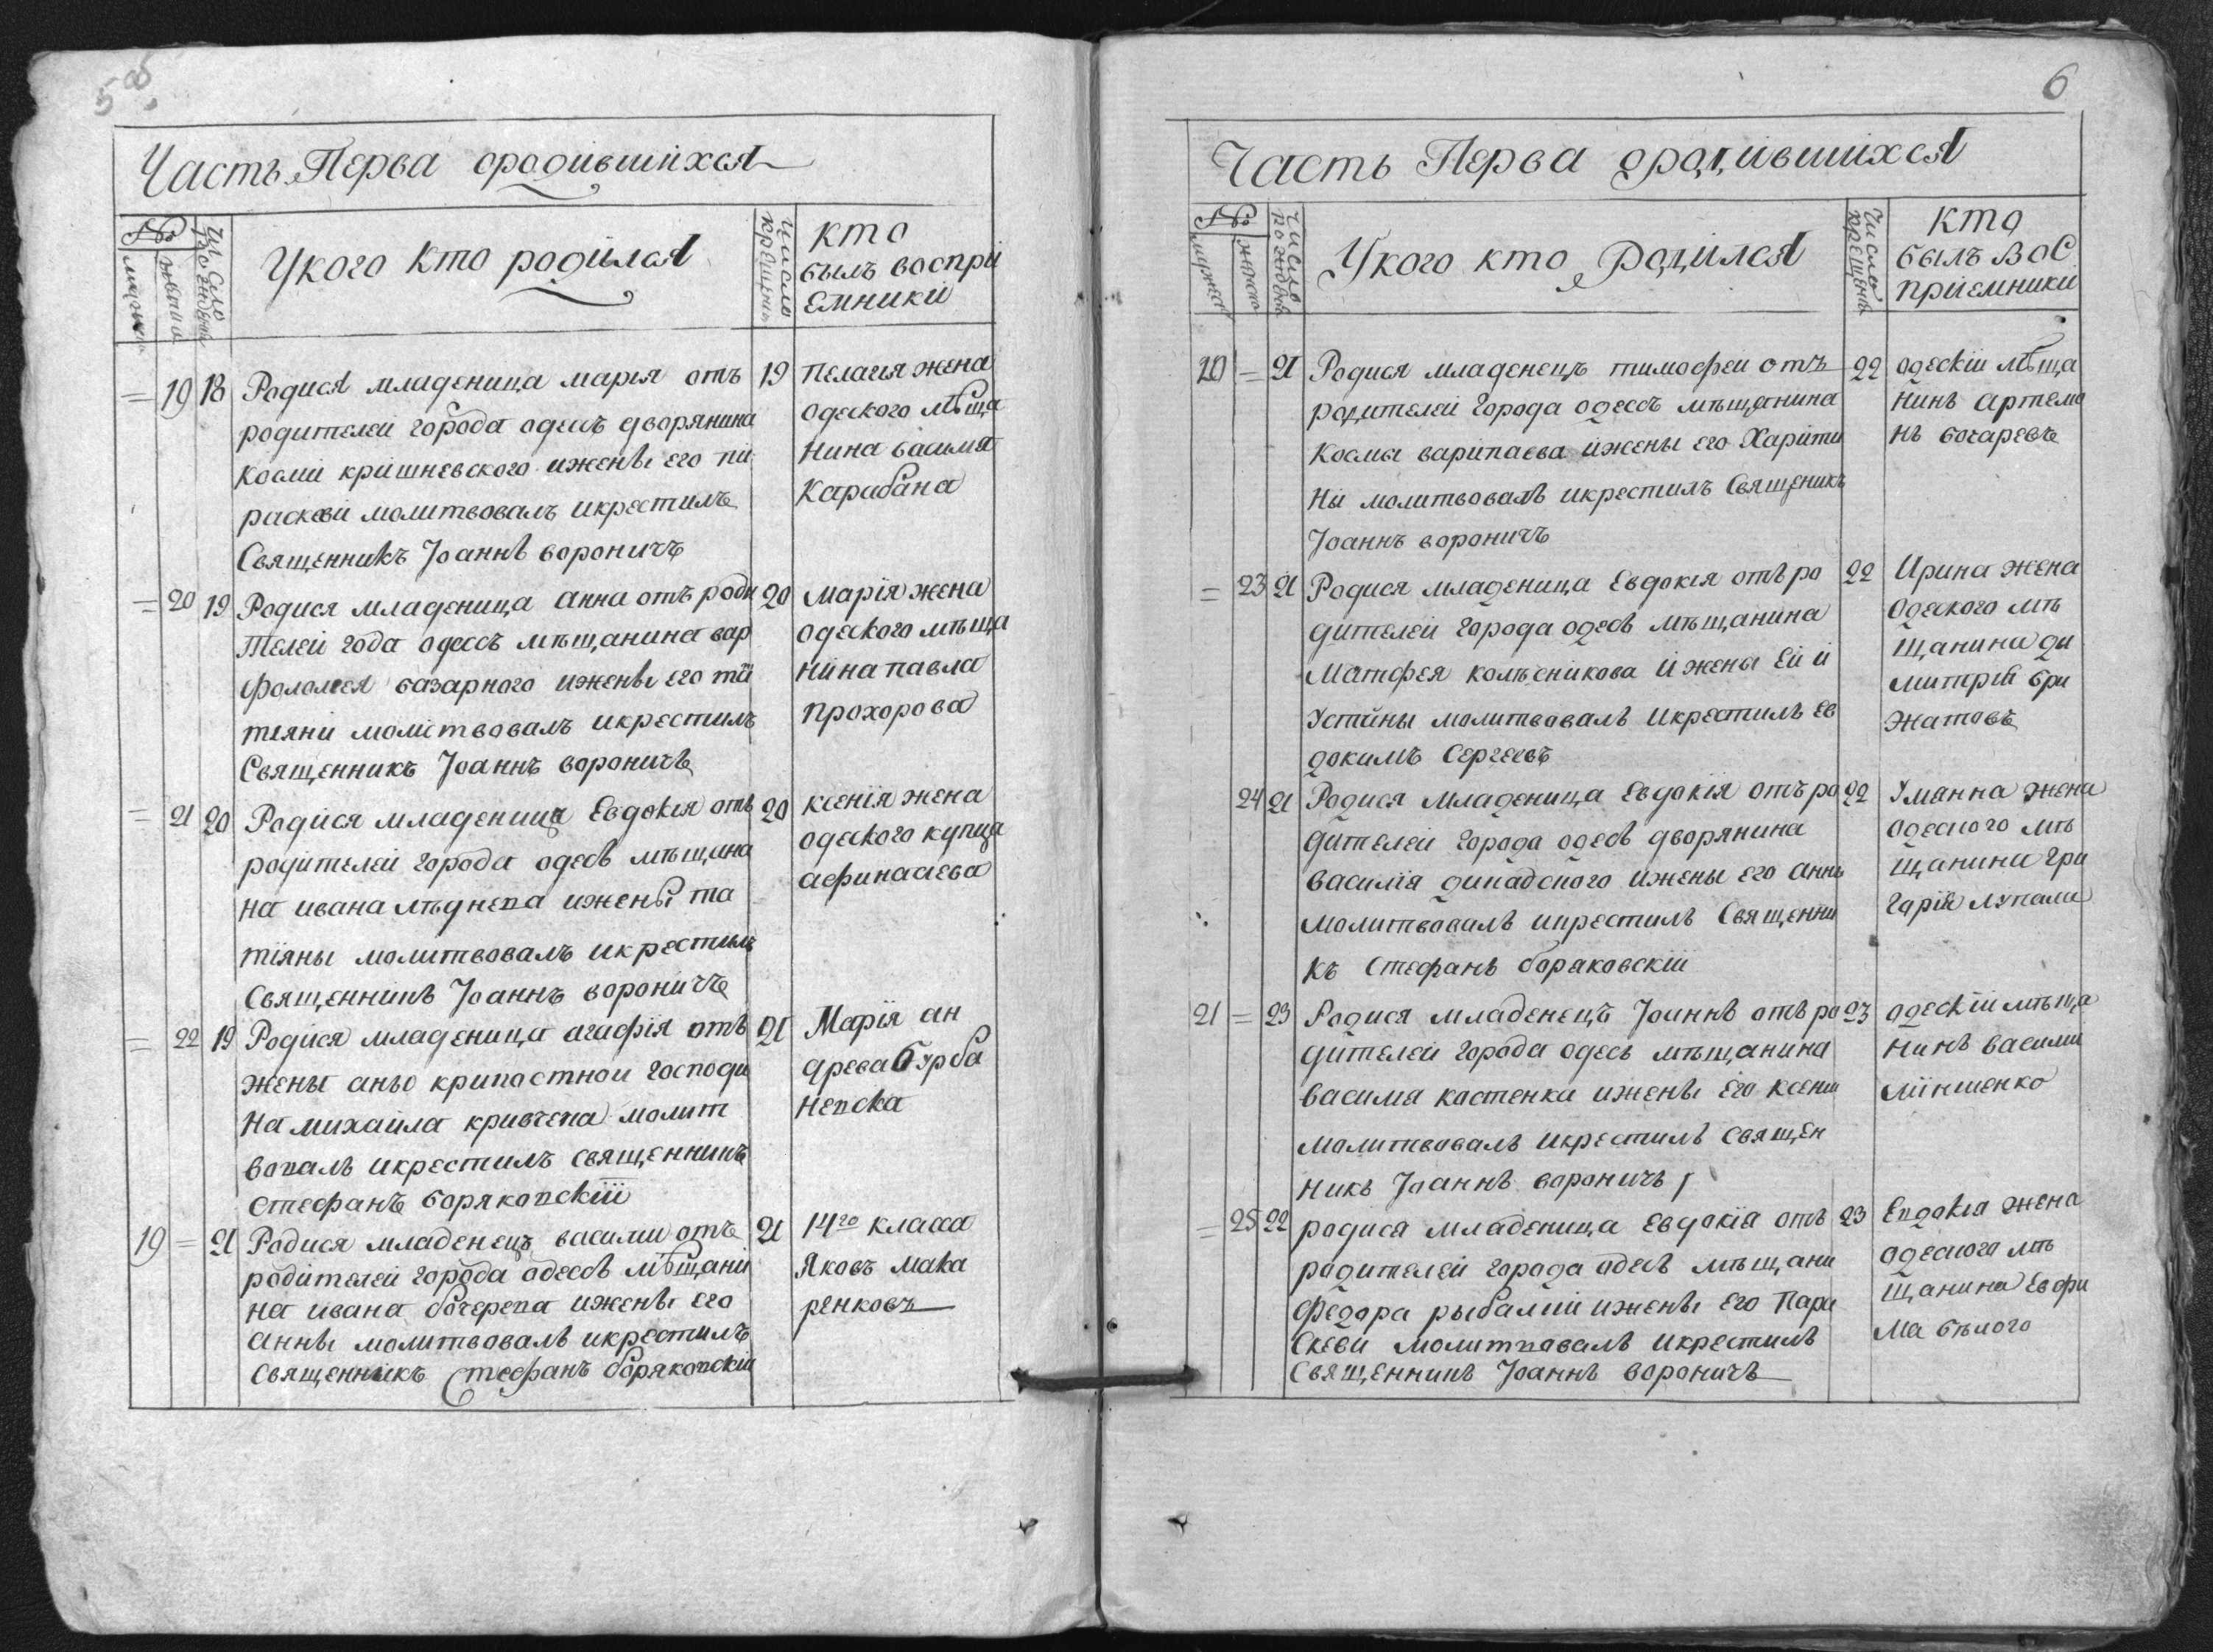 5 об.
Часть Перва ородившихся
№
Число рожденія
У кого кто родился
Число крещены
кто
былъ воспрі
емники
= 19 18 Родися младеница марія отъ 19 пелагия жена
родителей города одесъ дворянина одеского мѣща
космы кришневского ижены его па нина василия
раскеви молитвовалъ икрестилъ Карабана
Священникъ Іоаннъ вороничъ
= 20 19 Родися младеница анна отъ роди 20 марія жена
телей года одессъ мѣщанина вар одеского мѣща
фоломея базарного ижены его та нина павла
тияни молитвовалъ икрестилъ прохорова
Священникъ Іоаннъ вороничъ
= 21 20 Родися младеница Евдокія отъ 20 ксенія жена
родителей города одесъ мѣщана одеского купца
на ивана мѣднева ижены та афинасиева
тіяны молитвовалъ икрестилъ
Священникъ Іоаннъ вороничъ
= 22 19 Родися младеница агафія отъ 21 Марія ан
жены аньо крипостнои господи древа бурба
на михаила кривчена молит невска
вовалъ икрестилъ священникъ
стефанъ боряковскій
19 = 21 Родися младенецъ василии отъ 21 14го класса
родителей города одессъ мѣщани Яковъ мака
на ивана бочерева ижены его ренковъ
анны молитвовалъ икрестилъ
священникъ Стефанъ боряковскій
6
Часть Перва ородившихся
№
Число рожденія
У кого кто родился
Число крещены
кто
былъ вос
приемники
20 = 21 Родися младенецъ тимофеи отъ 22 одескіи мѣща
родителей города одессъ мѣщанина нинъ артемо
космы варіпаева ижены его Харити нъ бочаревъ
ны молитвовалъ икрестилъ Священикъ
Іоаннъ вороничъ
= 23 21 Родися младеница Евдокія отъ ро 22 Ирина жена
дителей города одесъ мѣщанина одеского мѣ
Матфея колѣсникова и жены ей и щанина ди
Устины молитвовалъ икрестилъ ев митрій бри
докимъ Сергеевъ жатовъ
24 21 Родися младеница Евдокія отъ ро 22 Уманна жена
дителей города одесъ дворянина одеского мѣ
василія динадского ижены его анны щанина гри
молитвовалъ икрестилъ Священни гарій лупали
къ Стефанъ бораковскій
21 = 23 Родися младенецъ Іоаннъ отъ ро 23 одескій мѣща
дителей города одесъ мѣщанина нинъ василии
василия костенка ижены его ксени линшенко
молитвовалъ икрестилъ священ
никъ Іоаннъ вороничъ
= 25 22 родися младеница евдокія отъ 23 Евдокія жена
родителей города одесъ мѣщани одеского мѣ
федора рыбалки ижены его Пара щанина Евфи
скеви молитвовалъ икрестилъ ма бѣлого
Священникъ Іоаннъ вороничъ